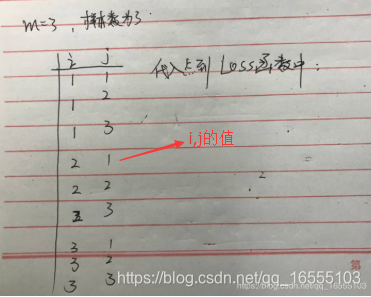 m=3，样本数为3
i j 代入点到Loss函数中：
1 1
1 2
1 3
i,j的值
2 1
2 2
2 3
3 1
3 2
3 3
第
https://blog.csdn.net/qq_16555103